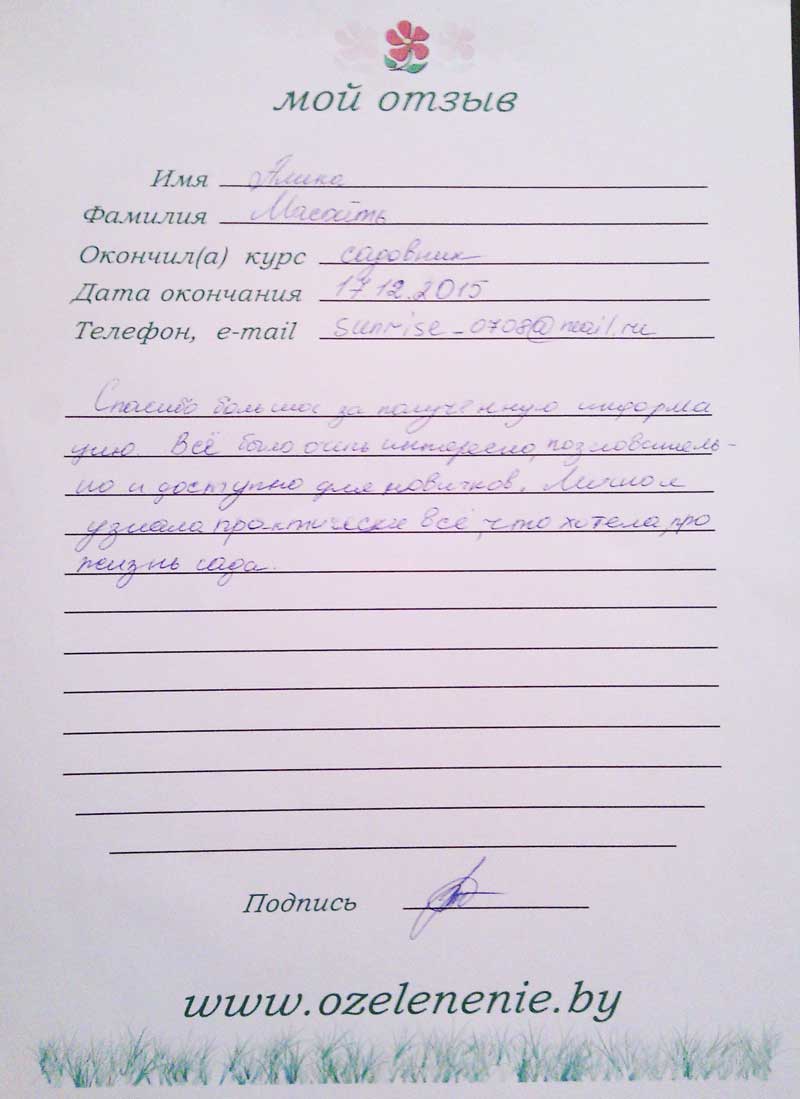 мой отзыв
Имя Алина
Фамилия
Окончил(а) курс садовник
Дата окончания 17.12.2015
Телефон, e-mail sunrise_0708@mail.ru
Спасибо большое за полученную информа
цию. Всё было очень интересно, познаватель-
но и доступно для новичков. Лично я
узнала практически всё, что хотела, про
жизнь сада.
Подпись
www.ozelenenie.by